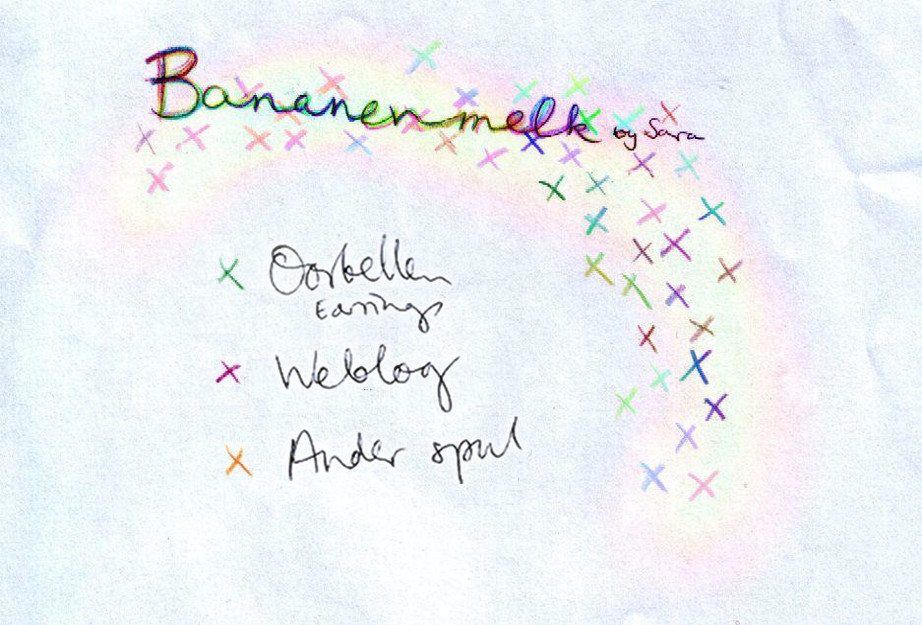 Bananenmelk by Sara
Oorbellen
Earrings
Weblog
Ander spul